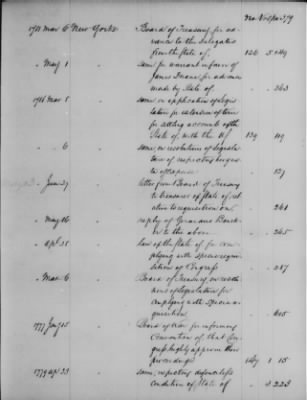 No Vol pa 379
1781 Mar 6 New York Board of Treasury for
vance to the Delegates
from the State of. 136 5 489
" May 1 " same for warrant in favor of
James Duane for advances
made by State of. " 263
1786 Mar 5 " same on application of Legis
lature for extension of time
for settling accounts of the
State of, with the US 139 119
" 6 " same, on resolutions of Legisla
ture of respecting
" June 27 " letter from Board of Treasury
to treasurer of State of rel
ative to requisition on. " 261
" May 16 " reply of Gerardus Banck
er to the above " 265
" Apl " law of the State of, for com
plying with Specie requi
sitions of Congress " 287
" Mar 6 " Board of Treasury on
of Legislature for
complying with Specie
requisition " 605
1777 Jany 15 " Board of War for informing
Convention of, that Con
gress highly approve their
proceedings 147 1 15
1779 Apl 23 " same, respecting defenceless
condition of State of " 3 223